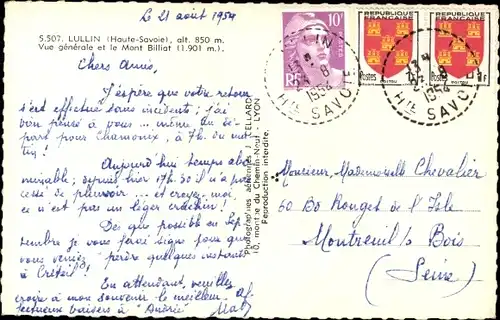 Le 21 août 1954
5.507. LULLIN (Haute-Savoie), alt. 850 m.
Vue générale et le Mont Billiat (1.901 m.).
Chers Amis,
J'espère que votre retour
s'est effectué sans incidents ; j'ai
bien pensé à vous ... même au dé-
part pour Chamonix, à 7h. du ma-
tin !
Aujourd'hui temps abo-
minable ; depuis hier 17h.30 il n'a pas
cessé de pleuvoir ... et croyez-moi,
ce n'est pas un léger crachin !
Dès que possible en Sep-
tembre je vous ferai signe pour que
vous veniez perdre quelques instants
à Créteil !
En attendant, veuillez
croire à mon souvenir le meilleur. Af-
fectueux baisers à Andrée
Photographies aériennes J. CELLARD
10, montée du Chemin-Neuf - LYON
Reproduction interdite.
10F
RF
LULLIN
8
1954
HTE SAVOIE
REPUBLIQUE FRANÇAISE
Postes
POITOU
REPUBLIQUE FRANÇAISE
Postes
POITOU
1F
8
1954
HTE SAVOIE
Monsieur, Mademoiselle Chevalier
60 Bd Rouget de l'Isle
Montreuil s/s Bois
(Seine)